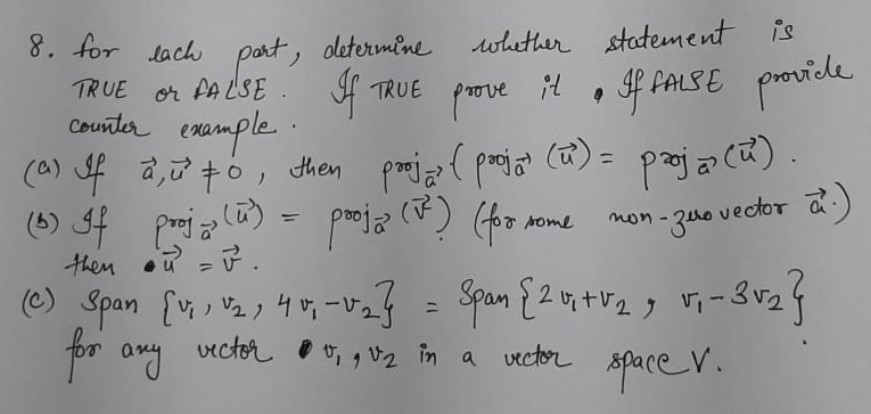 8. for each part, determine whether statement is
TRUE or FALSE. If TRUE prove it. If FALSE provide
counter example.
(a) If a⃗, u⃗ ≠ 0, then proj_a⃗ ( proj_a⃗ (u⃗) = proj_a⃗ (u⃗).
(b) If proj_a⃗ (u⃗) = proj_a⃗ (v⃗) (for some non-zero vector a⃗.)
then u⃗ = v⃗.
(c) Span {v₁, v₂, 4v₁-v₂} = Span {2v₁+v₂, v₁-3v₂}
for any vector v₁, v₂ in a vector space V.